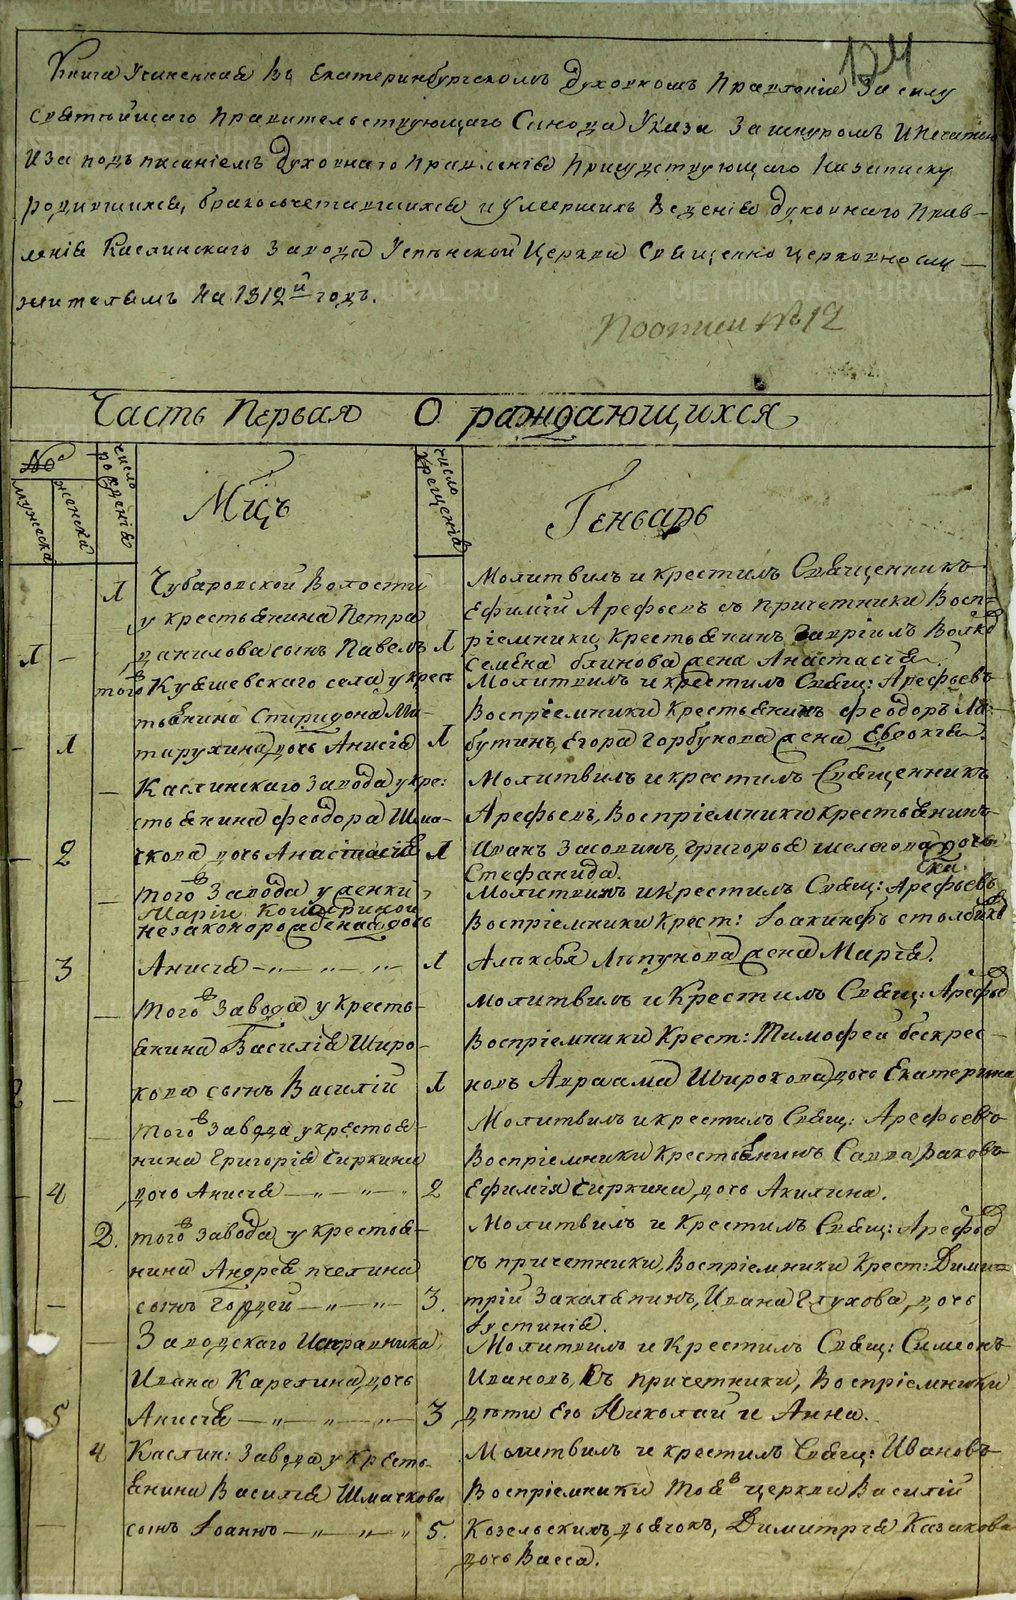 124
Книга Учиненная Въ Екатеринбургскомъ Духовномъ Правленіи За силу
Святѣйшаго Правительствующаго Синода Указа За шнуромъ И Печатью
И за подписаніемъ Духовнаго Правленія Присудствующаго На записку
родившихся, бракосочетавшихся и умершихъ Веденія Духовнаго Прав-
ленія Каслинскаго Завода Успенской Церкви Священно церковнослу-
жителямъ На 1812й годъ.
По описи № 12
Часть Первая О раждающихся
№
мужеска
женска
число рожденія
Мцъ
число крещенія
Генварь
1 Чубаровской Волости
у крестьянина Петра
1 — Данилова сынъ Павелъ 1
Молитвилъ и крестилъ Священникъ
Ефимій Арефьевъ съ причетники Восп=
ріемники, Крестьянинъ Гавріилъ
Семена блинова жена Анастасія.
того Куяшевскаго села у крест
тьянина Спиридона Ма-
— 1 тарухина дочь Анисія 1
Молитвилъ и крестилъ Свящ: Арефьевъ
Воспріемники Крестьянинъ Феодоръ Ла-
бутинъ, Егора Горбунова жена Евдокія.
— Каслинскаго Завода у кре:
стьянина Феодора Шма-
— 2 чкова дочь Анастасія 1
Молитвилъ и крестилъ Священникъ
Арефьевъ, Воспріемники крестьянинъ
Иванъ Засопинъ, Григорья дочь
Стефанида.
— того Завода у женки
Маріи
незаконорожденая дочь
3 Анисія — „ — „ 1
Молитвилъ и крестилъ Свящ: Арефьевъ
Воспріемники Крест: Іоакинфъ
Алексѣя Ляпунова жена Марія.
— Того Завода у кресть-
янина Василія Широ-
2 — кова сынъ Василій 1
Молитвилъ и Крестилъ Свящ: Арефьев
Воспріемники Крест: Тимофей бескрес-
новъ Авраама Широкова дочь Екатерина
— того Завода у крестья-
нина Григорія Чиркина
— 4 дочь Анисія — „ — „ 2
Молитвилъ и крестилъ Свящ: Арефьевъ
Воспріемники крестьянинъ Савва Раковъ
Ефимія Чиркина дочь Акилина.
2. того Завода у крестья-
нина Андрея пчелина
— сынъ Гордей — „ — „ 3.
Молитвилъ и Крестилъ Свящ: Арефьев
съ причетники, Воспріемники Крест: Дими-
трій Закаляпинъ, Ивана Глухова дочь
Іустинія.
— Заводскаго Исправника
Ивана Карелина дочь
5 Анисія — „ — „ 3
Молитвилъ и Крестилъ Свящ: Симеонъ
Ивановъ, Съ причетники, Воспріемники
дѣти Его Николай и Анна.
4 Каслин: Завода у Кресть-
янина Василія Шмачкова
— сынъ Іоаннъ — „ — „ 5.
Молитвилъ и крестилъ Свящ: Ивановъ
Воспріемники Тоя церкви Василій
Козельскихъ дьячокъ, Димитрія Казакова
дочь Васса.